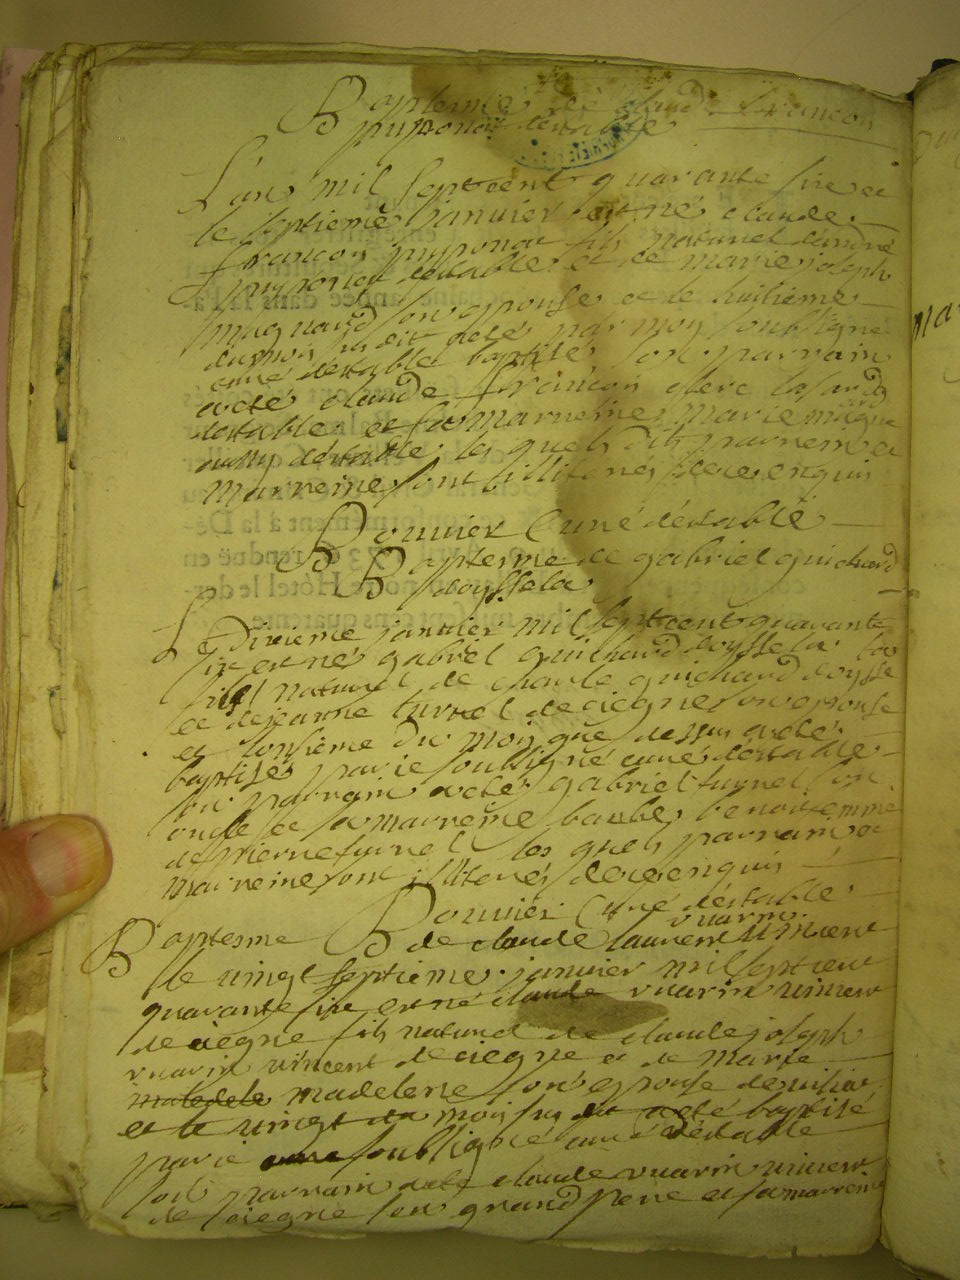 Baptesme de claude francois
puponat destable
L'an mil septcent quarante sixe et
le septieme janvier est né claude
francois puponat fils naturel dandré
puponat destable et de marie joseph
magnard son epouse et le huitieme
dumois susdit acté par moy soubsigné
curé destable baptisé son parrain
acté claude francois clerc
destable et sa marreine marie magnard
aussy destable les quels dits parrein et
marreine sont illiterés de ce enquis
Bouvier Curé destable
Baptesme de gabriel guichard
doysselat
Le dixieme janvier mil septcent quarante
sixe est né gabriel guichard doysselat
fils naturel de charle guichard doysse
et de jeanne turrel de ciegne son epouse
et lonsieme du mois que dessus acté
baptisés par je soubsigné curé destable
son parrain acté gabriel turrel son
oncle et sa marreine femme
de pierre turrel les quels parrain et
marreine sont illiterés de ce enquis
Bouvier Curé destable
Baptesme de claude laurent vuarin vincent
le vingt septieme janvier mil septcent
quarante sixe est né claude vuarin vincent
de ciegne fils naturel de claude joseph
vuarin vincent de ciegne et de marie
madelene son epouse
et le vingt du mois susdit acté baptisé
par je soubsigné curé destable
son parrain acté claude vuarin vincent
de ciegne son grand pere et sa marreine